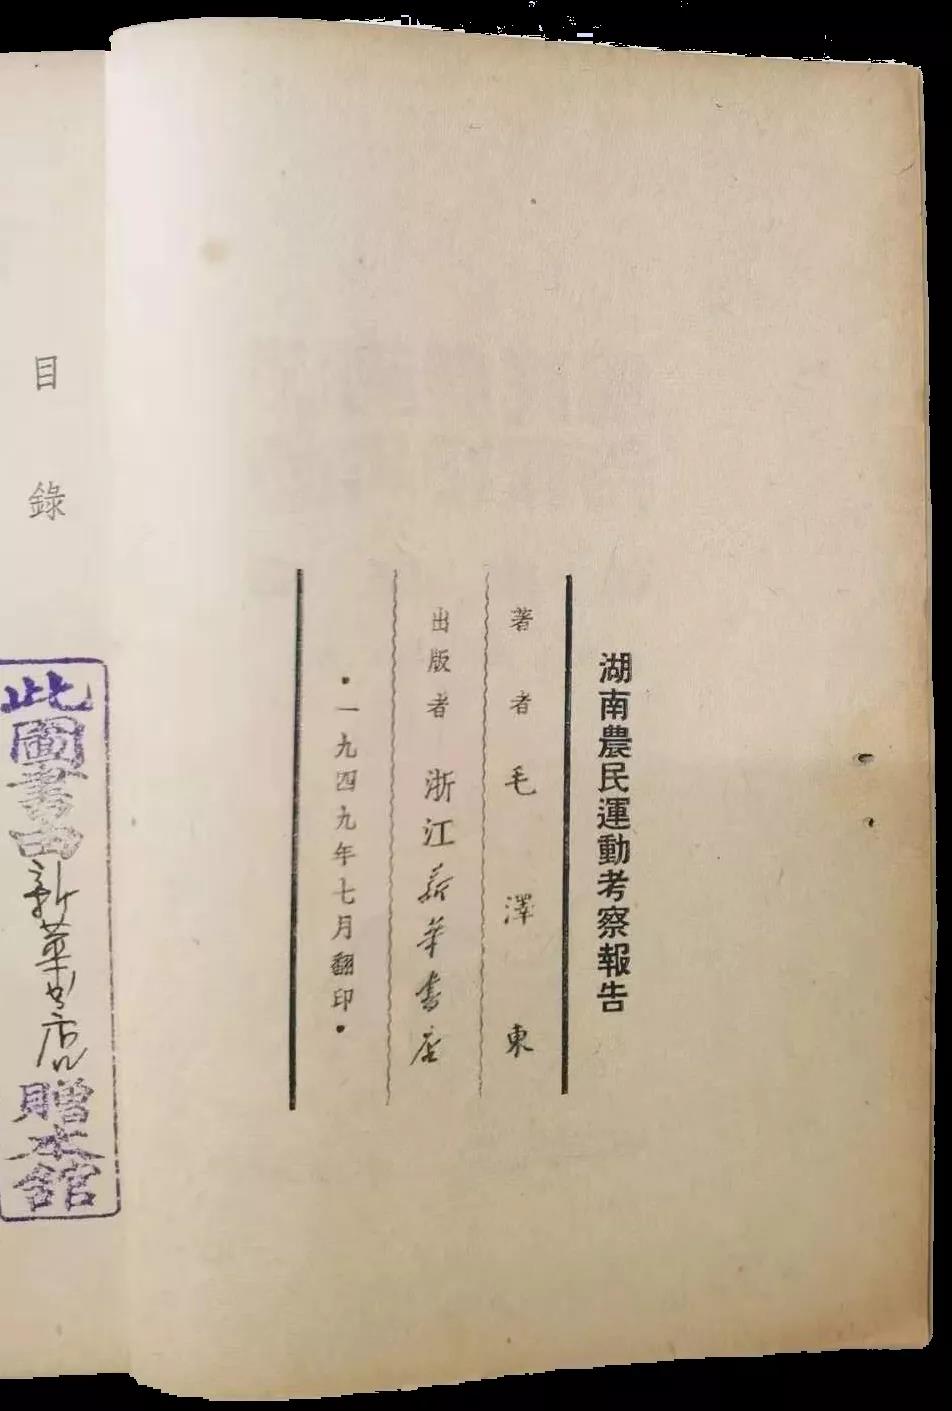 湖南農民運動考察報告
著者 毛澤東
出版者 浙江新华書店
•一九四九年七月翻印•
目錄
此圖書由新華书店贈本館